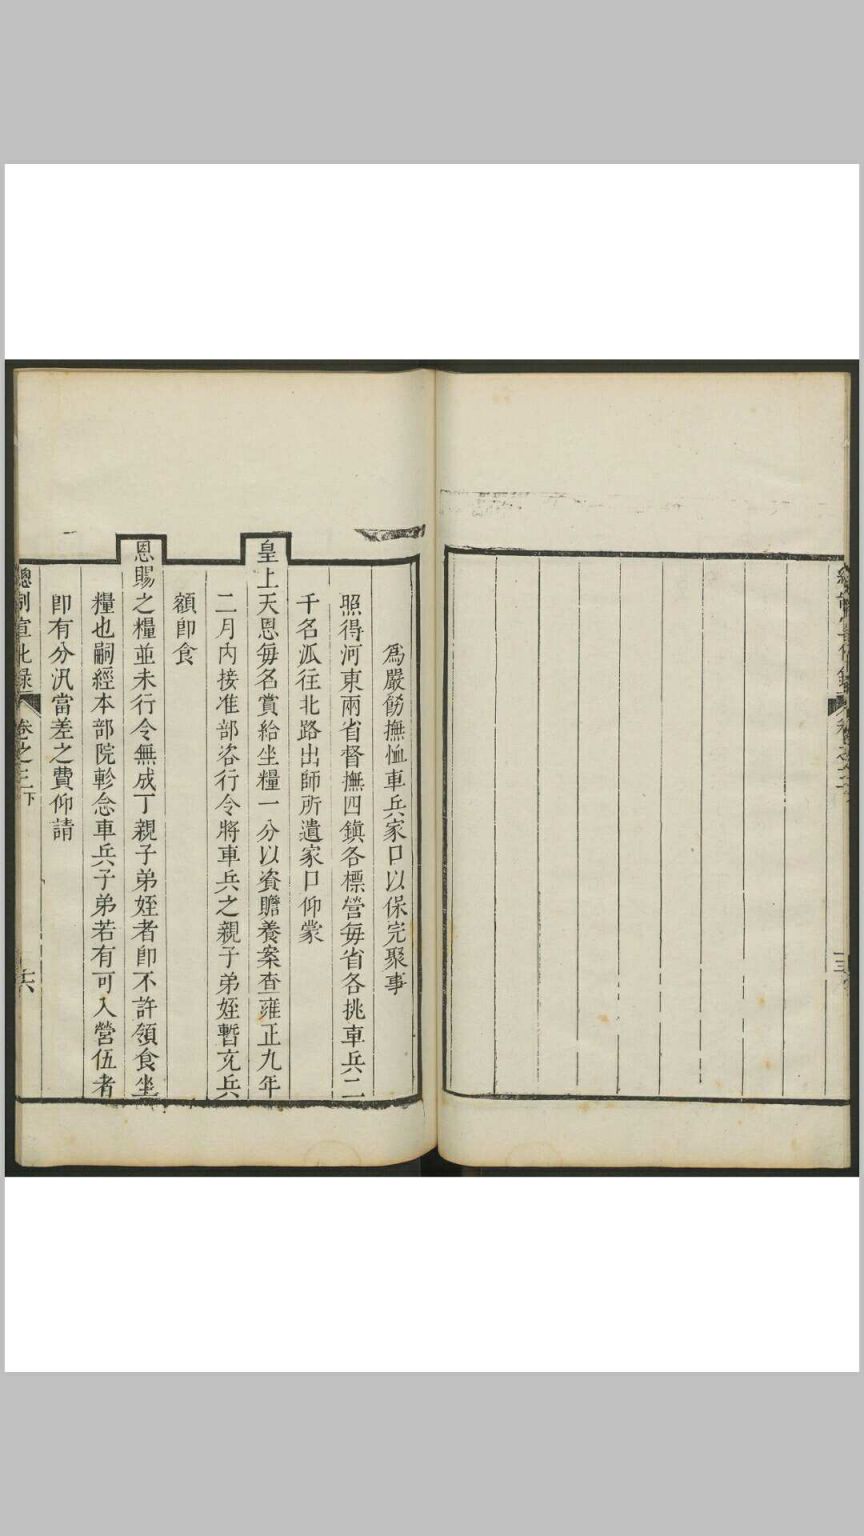 為嚴飭撫恤車兵家口以保完聚事
照得河東兩省督撫四鎮各標營每省各挑車兵二
千名派往北路出師所遺家口仰蒙
皇上天恩每名賞給坐糧一分以資贍養案查雍正九年
二月內接准部咨行令將車兵之親子弟姪暫充兵
額卽食
恩賜之糧並未行令無成丁親子弟姪者卽不許領食坐
糧也嗣經本部院軫念車兵子弟若有可入營伍者
卽有分汛當差之費仰請
總制宣化錄 卷之三下 六